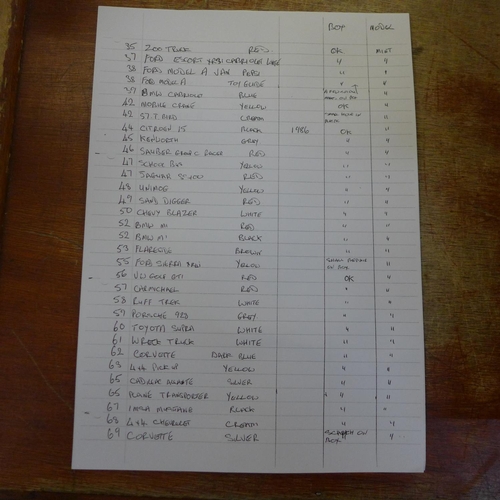 BOX MODEL
35 ZOO TRUCK RED OK MINT
37 FORD ESCORT XR3I CABRIOLET " "
38 FORD MODEL A VAN PEPSI " "
38 FORD MODEL A TOY GUIDE " "
39 BMW CABRIOLET BLUE
42 MOBILE CRANE YELLOW OK "
42 57 T BIRD CREAM "
44 CITROEN 15 BLACK 1986 OK "
45 KENWORTH GRAY " "
46 SAUBER GROUP C RACER RED " "
47 SCHOOL BUS YELLOW " "
47 JAGUAR SS100 RED " "
48 UNIMOG YELLOW " "
49 SAND DIGGER RED " "
50 CHEVY BLAZER WHITE " "
52 BMW M1 RED " "
52 BMW M1 BLACK " "
53 FLARESIDE BROWN " "
55 FORD SIERRA YELLOW "
56 VW GOLF GTI RED OK "
57 CARMICHAEL RED " "
58 RUFF TREK WHITE " "
59 PORSCHE 928 GREY " "
60 TOYOTA SUPRA WHITE " "
61 WRECK TRUCK WHITE " "
62 CORVETTE DARK BLUE " "
63 4X4 PICK UP YELLOW " "
65 CADILLAC ALLANTE SILVER " "
65 PLANE TRANSPORTER YELLOW " "
67 BLACK " "
68 4X4 CHEVROLET CREAM " "
69 CORVETTE SILVER SCRATCH ON BOX "